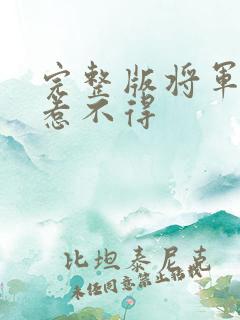 完整版将军
惹不得
比坦泰尼克
未经同意禁止转载